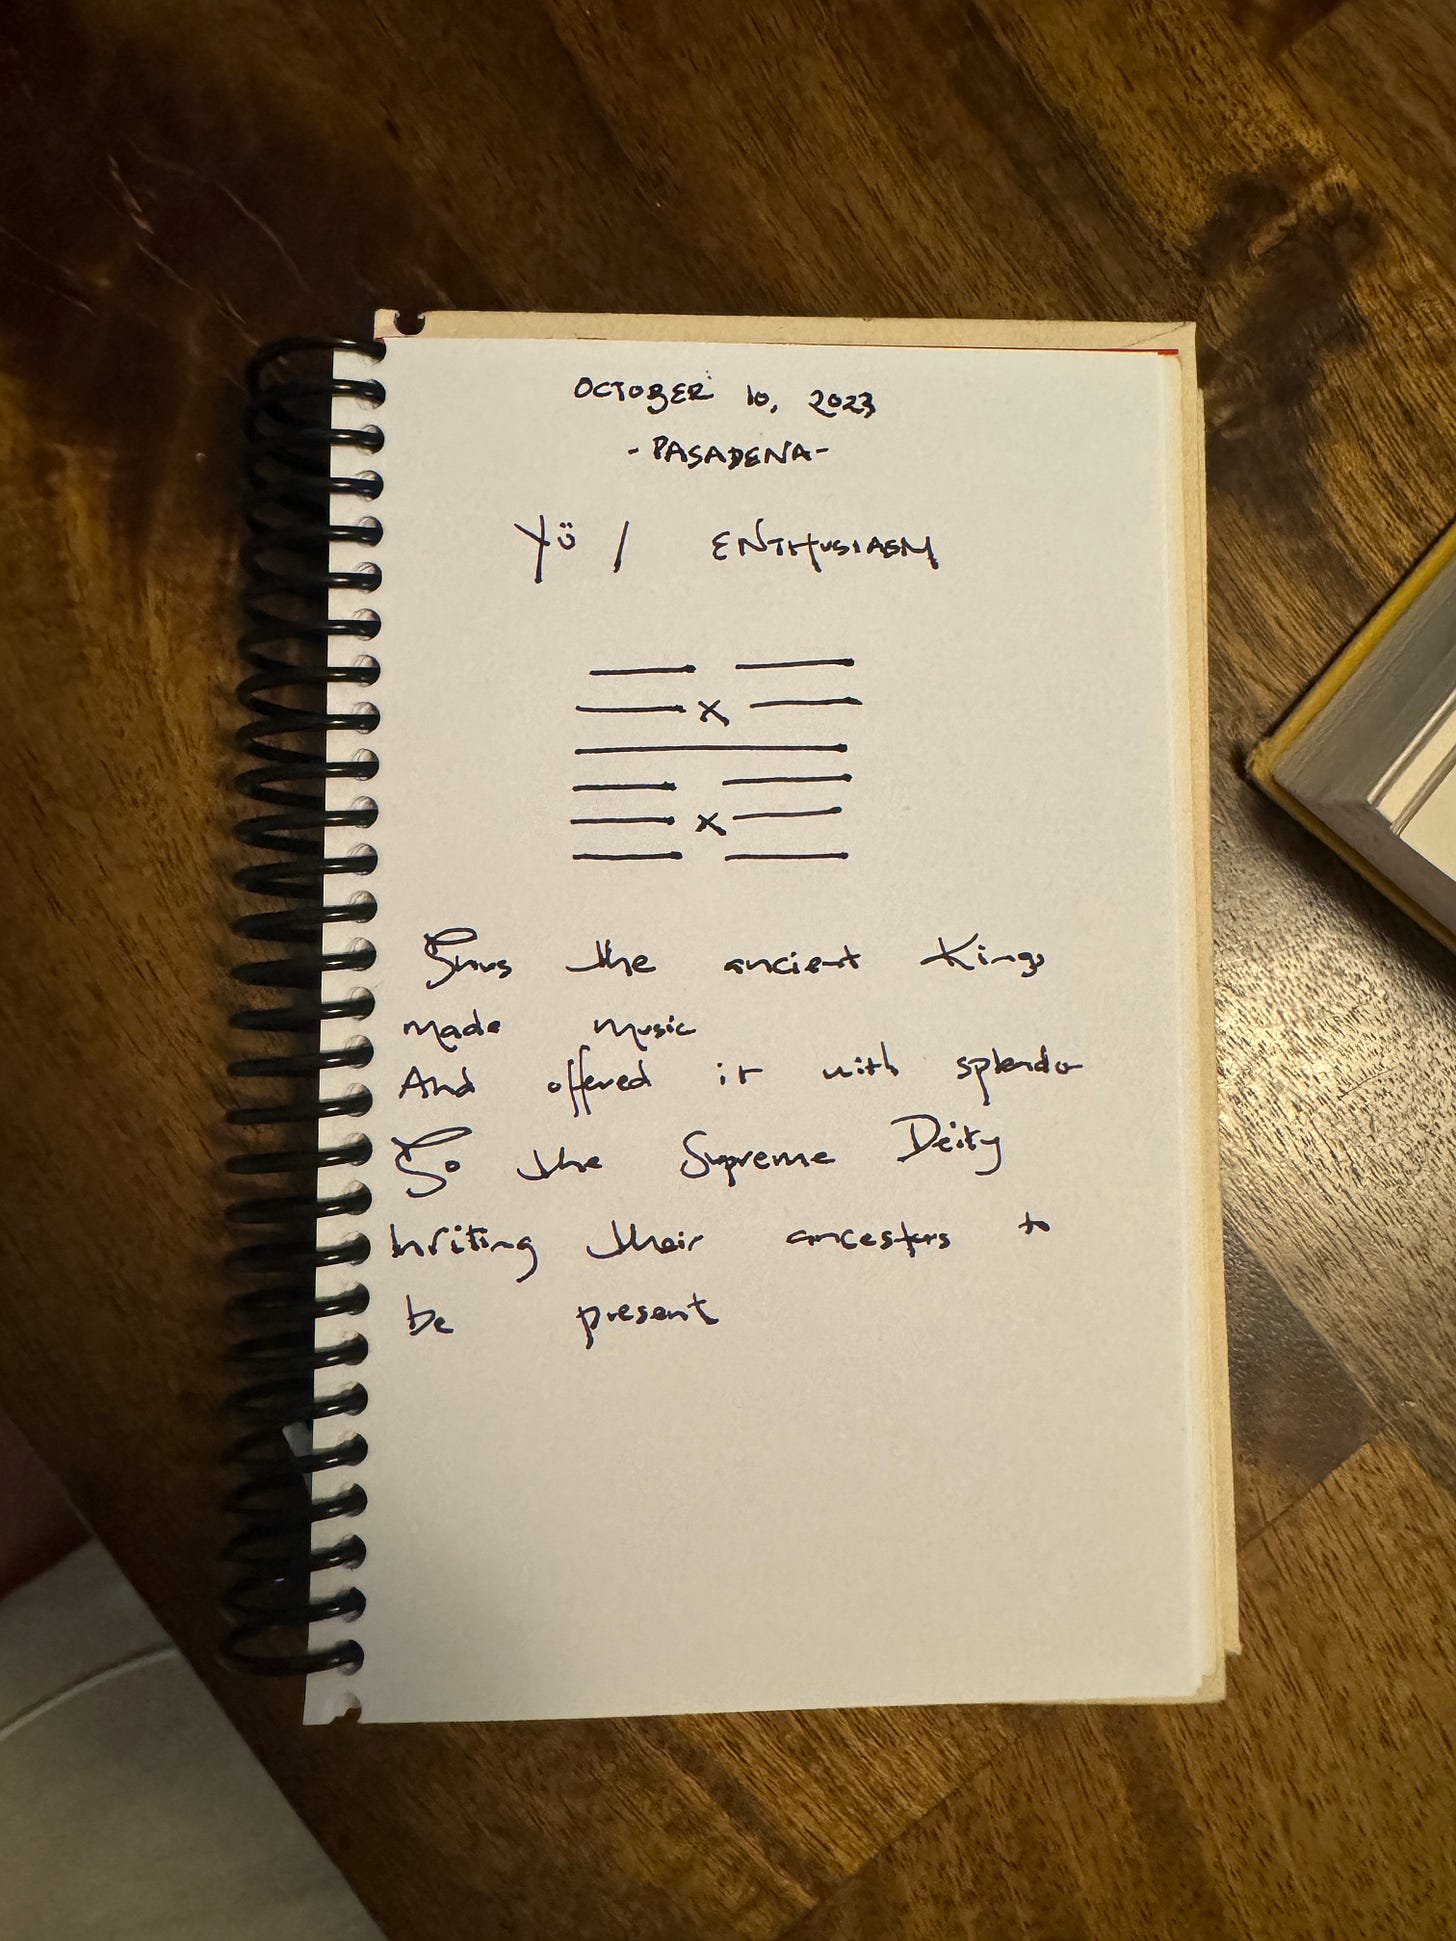 OCTOBER 10, 2023
-PASADENA-
YÜ / ENTHUSIASM
x
x
Thus the ancient Kings
made music
And offered it with splendor
To the Supreme Deity
Inviting their ancestors to
be present